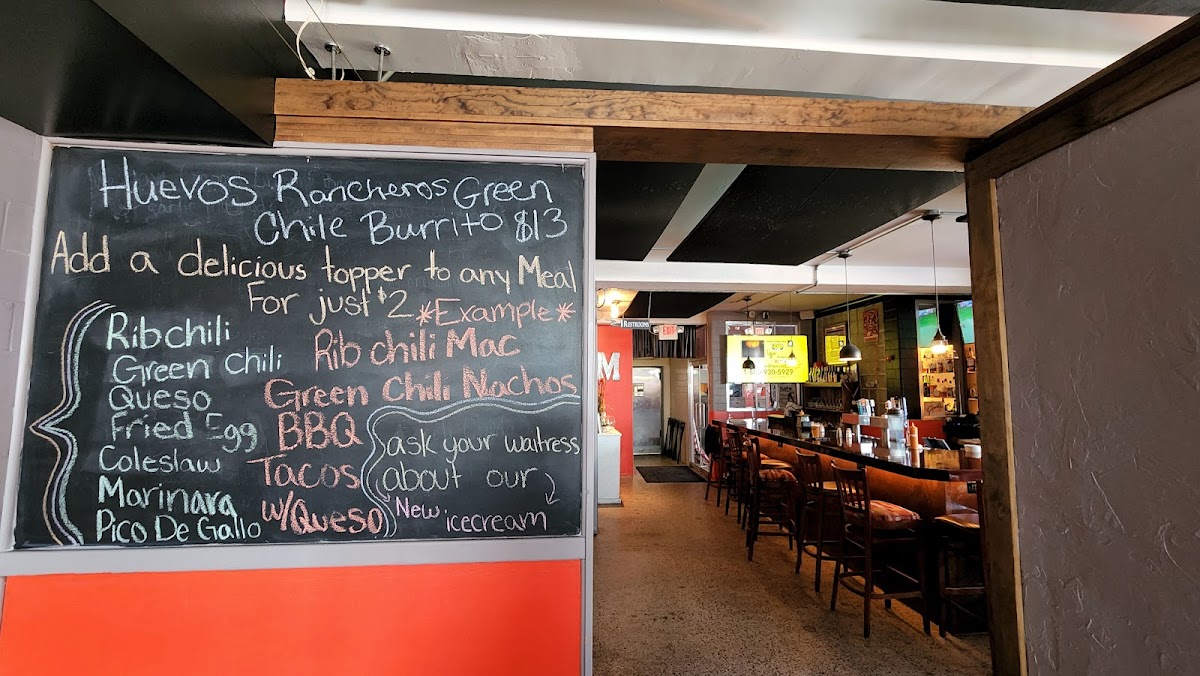 Huevos Rancheros Green
Chile Burrito $13
Add a delicious topper to any Meal
For just $2 *Example*
Ribchili
Green Chili
Queso
Fried Egg
Coleslaw
Marinara
Pico De Gallo
Rib chili Mac
Green Chili Nachos
BBQ
Tacos
w/Queso
ask your waitress
about our
New icecream
RESTROOMS
EXIT
M